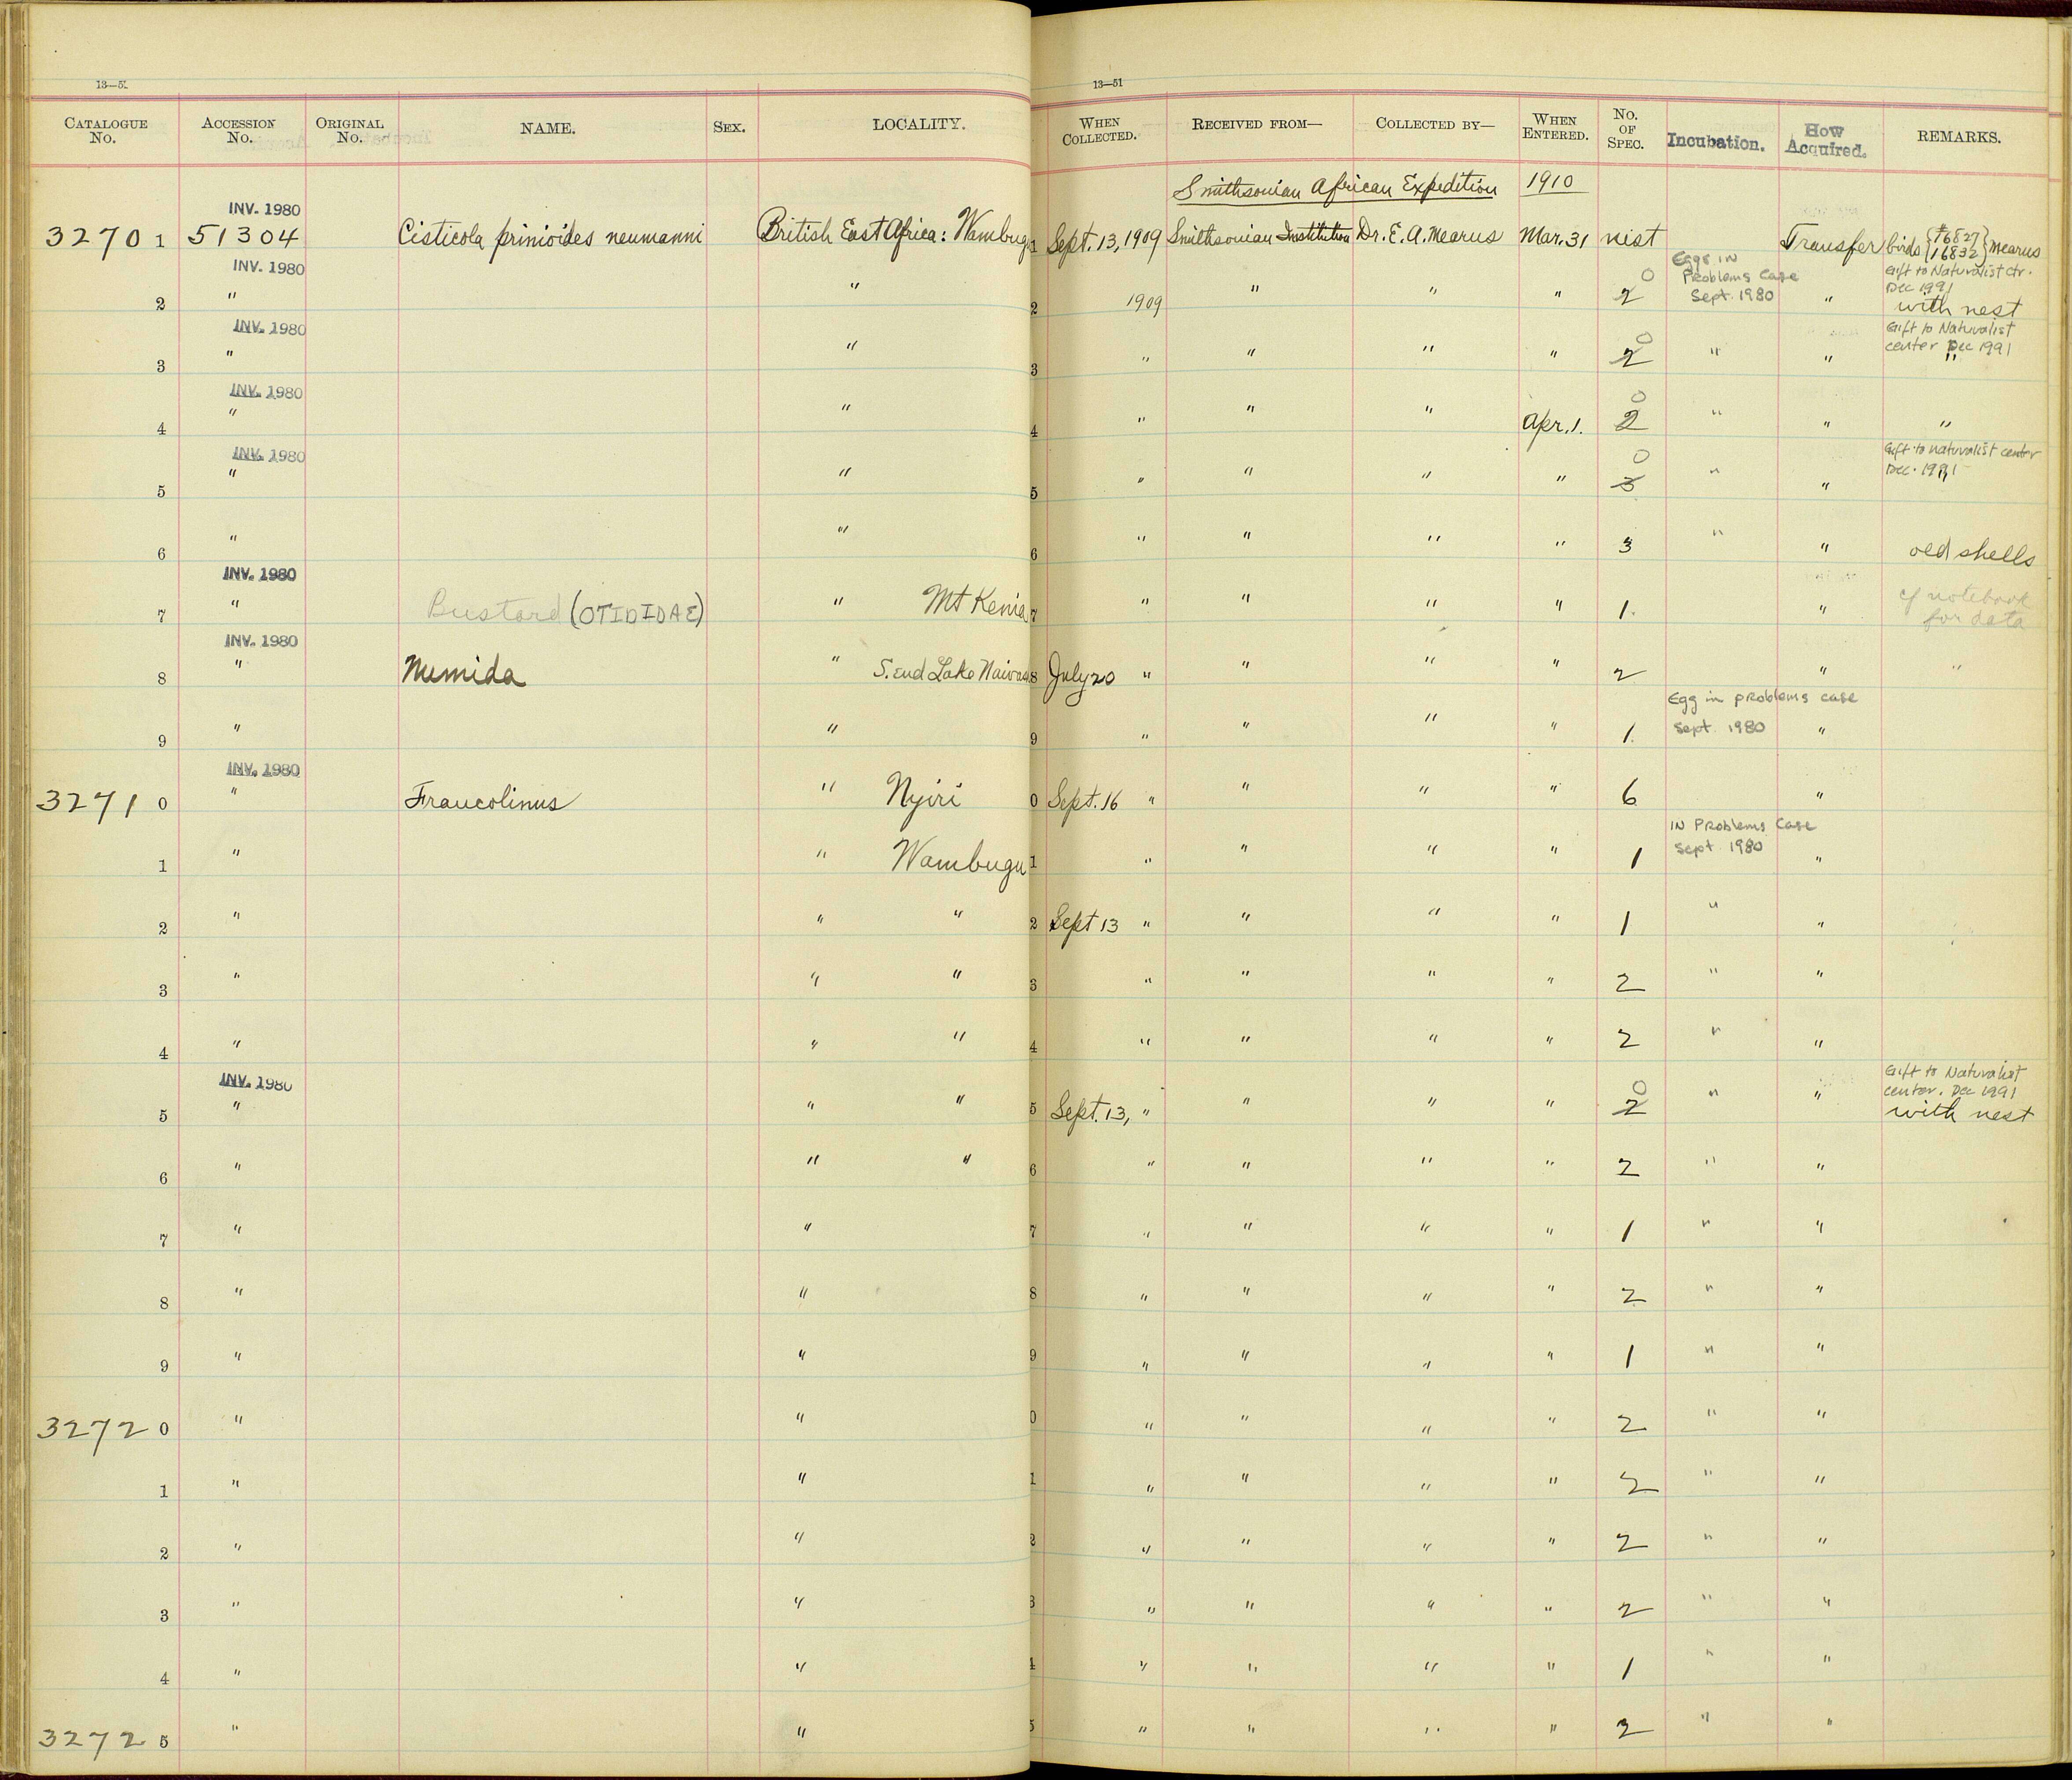 13—51
13—51
CATALOGUE No. ACCESSION No. ORIGINAL No. NAME. SEX. LOCALITY. WHEN COLLECTED. RECEIVED FROM— COLLECTED BY— WHEN ENTERED. No. OF SPEC. Incubation. How Acquired. REMARKS.
Smithsonian African Expedition 1910
INV. 1980
32701 51304 Cisticola prinioides neumanni British East Africa: Wambugu 1 Sept. 13, 1909 Smithsonian Institution Dr. E. A. Mearns Mar. 31 nest Transfer birds {#16827 16832} Mearns
INV. 1980 Eggs in Problems Case Sept. 1980 Gift to Naturalist ctr. Dec 1991
2 " " 2 1909 " " " 2 0 " with nest
INV. 1980 Gift to Naturalist center Dec 1991
3 " " 3 " " " " 2 0 " " "
INV. 1980
4 " " 4 " " " Apr. 1. 2 0 " " "
INV. 1980 Gift to naturalist center Dec. 1991
5 " " 5 " " " " 3 0 " " "
6 " " 6 " " " " 3 " " old shells
INV. 1980
7 " Bustard (OTIDIDAE) " Mt Kenia 7 " " " " 1. " cf notebook for data
INV. 1980
8 " Numida " S. end Lake Naivas 8 July 20 " " " " 2 " "
Egg in problems case Sept. 1980
9 " " 9 " " " " 1. "
INV. 1980
32710 " Francolinus " Nyiri 0 Sept. 16 " " " " 6 "
IN Problems Case Sept 1980
1 " " Wambugu 1 " " " " 1 "
2 " " " 2 Sept 13 " " " " 1 " "
3 " " " 3 " " " " 2 " "
4 " " " 4 " " " " 2 " "
INV. 1980 Gift to Naturalist center. Dec 1991
5 " " " 5 Sept. 13, " " " " 2 0 " " with nest
6 " " " 6 " " " " 2 " "
7 " " 7 " " " " 1 " "
8 " " 8 " " " " 2 " "
9 " " 9 " " " " 1 " "
32720 " " 0 " " " " 2 " "
1 " " 1 " " " " 2 " "
2 " " 2 " " " " 2 " "
3 " " 3 " " " " 2 " "
4 " " 4 " " " " 1 " "
32725 " " 5 " " " " 2 " "